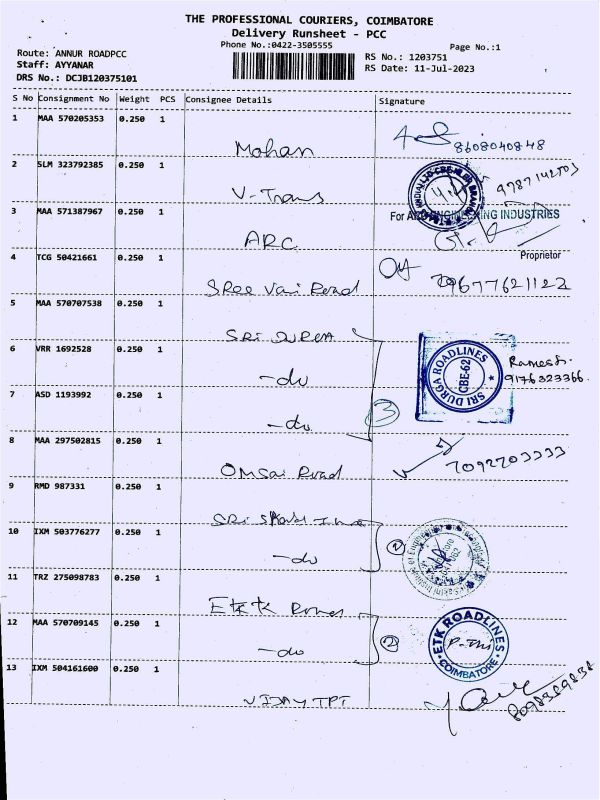 THE PROFESSIONAL COURIERS, COIMBATORE
Delivery Runsheet - PCC
Phone No.:0422-3505555
Page No.:1
Route: ANNUR ROADPCC
Staff: AYYANAR
DRS No.: DCJB120375101
RS No.: 1203751
RS Date: 11-Jul-2023
S No Consignment No Weight PCS Consignee Details Signature
1 MAA 570205353 0.250 1
Mohan 8608040848
2 SLM 323792385 0.250 1
V-Trans
3 MAA 571387967 0.250 1
For ENGINEERING INDUSTRIES
ARC
Proprietor
4 TCG 50421661 0.250 1
Sree Vai Road 9677621122
5 MAA 570707538 0.250 1
SRI DURGA
6 VRR 1692528 0.250 1
-do
SRI DURGA ROADLINES
CBE-62
Ramesh.
9176323366.
7 ASD 1193992 0.250 1
-do 3
8 MAA 297502815 0.250 1
Omsai Road 7092703333
9 RMD 987331 0.250 1
Sri
10 IXM 503776277 0.250 1
-do 2
11 TRZ 275098783 0.250 1
ETK
12 MAA 570709145 0.250 1
-do 2
ETK ROADLINES
COIMBATORE
13 IXM 504161600 0.250 1
VIJAY TPT